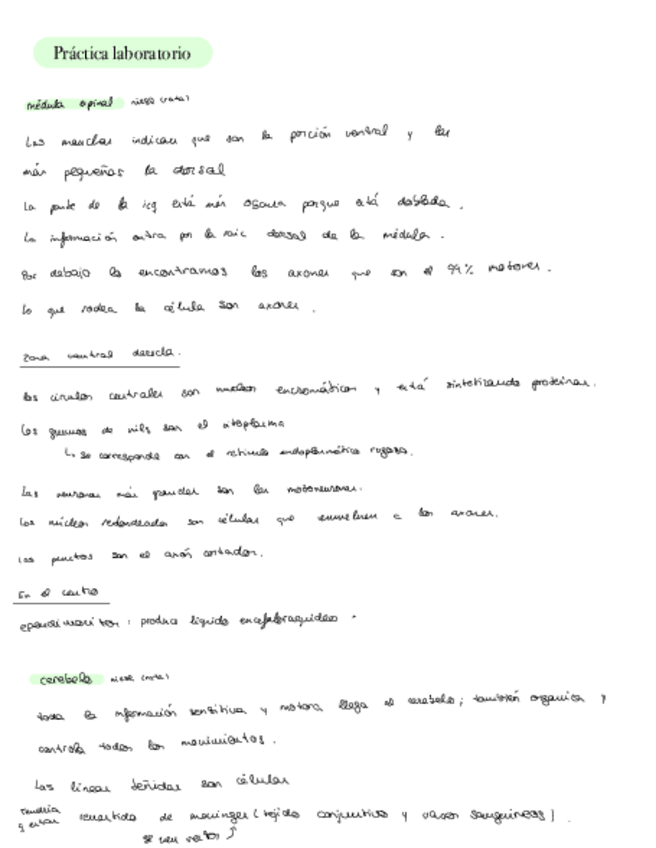 Práctica laboratorio
médula espinal nissl (rata)
Las manchas indican que son la porción ventral y las
más pequeñas la dorsal
La parte de la izq está más oscura porque está doblada.
La información entra por la raíz dorsal de la médula.
Por debajo la encontramos los axones que son el 99% motores.
lo que rodea la célula son axones.
Zona ventral derecha.
los círculos centrales son nucleos y está sintetizando proteinas.
Los grumos de nils son el citoplasma
↳ se corresponde con el retículo endoplasmático rugoso.
Las neuronas más grandes son las motoneuronas.
Los núcleos redondeados son células que envuelven a los axones.
los puntos son el axón cortador.
En el centro
: produce líquido encefaloraquideo
cerebelo nissl (rata)
toda la información sensitiva y motora llega al cerebelo; también organiza y
controla todos los movimientos.
Las líneas teñidas son células
recubrido de meninges (tejido conjuntivo y vasos sanguineos).
se ven restos